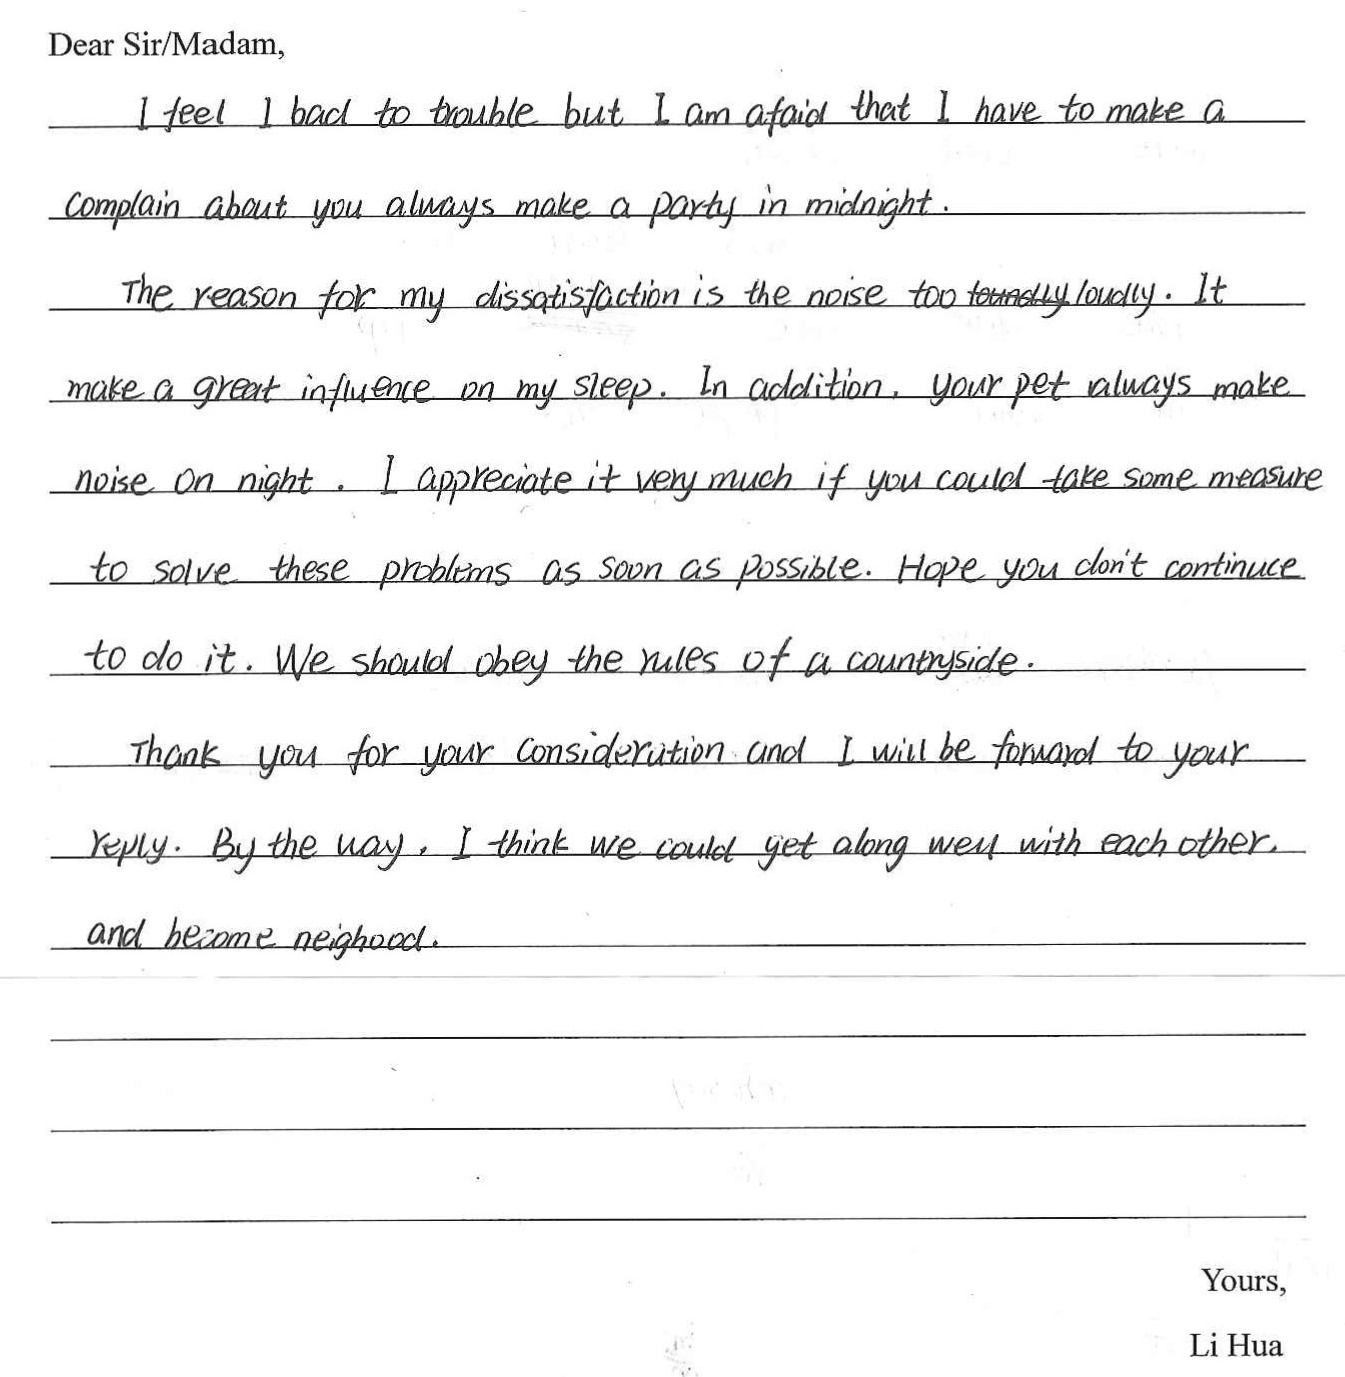 Dear Sir/Madam,
I feel I bad to trouble but I am afaid that I have to make a
complain about you always make a party in midnight.
The reason for my dissatisfaction is the noise too loudly. It
make a great influence on my sleep. In addition, your pet always make
noise on night. I appreciate it very much if you could take some measure
to solve these problems as soon as possible. Hope you don't continuce
to do it. We should obey the rules of a countryside.
Thank you for your consideration and I will be forward to your
reply. By the way, I think we could get along well with each other.
and become neighood.
Yours,
Li Hua